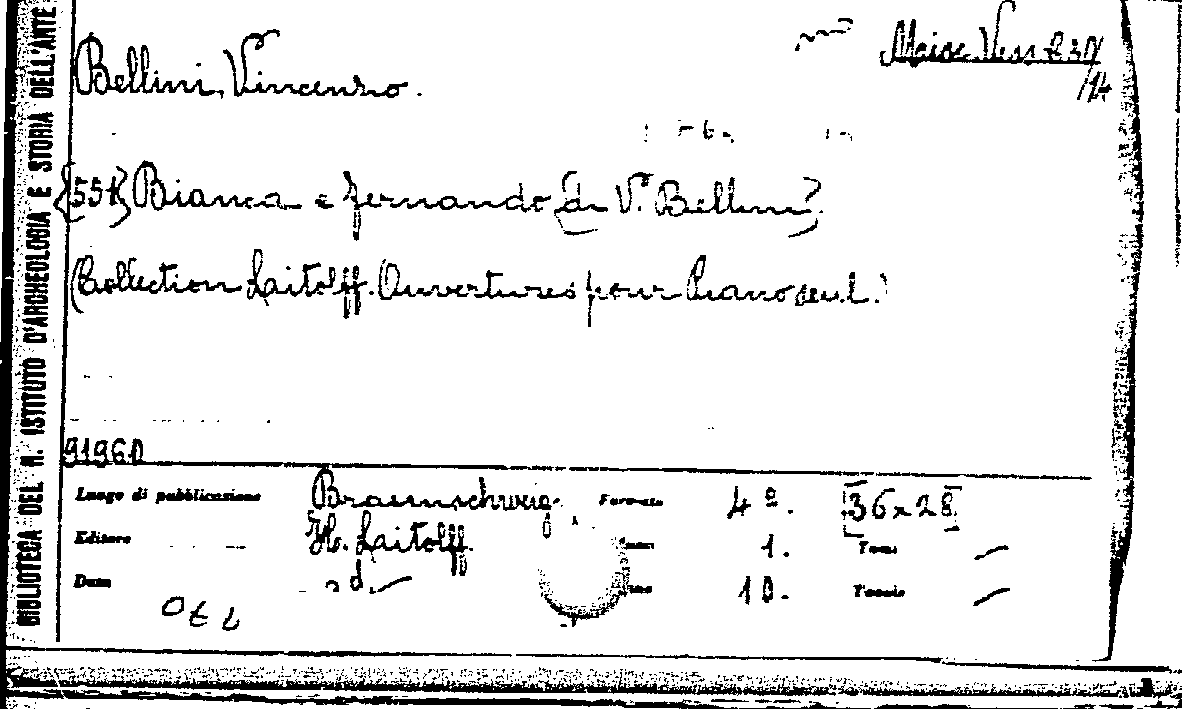 BIBLIOTECA DEL R. ISTITUTO D'ARCHEOLOGIA E STORIA DELL'ARTE
Bellini, Vincenzo.
/14
{551} Bianca e Fernando [di V. Bellini]
(Collection Laitolff. Ouvertures pour Piano seul.)
91960
Luogo di pubblicazione Braunschweig. Formato 4º. [36x28]
Editore H. Laitolff. 1. Tomi —
Data s.d. — 10. Tavole —